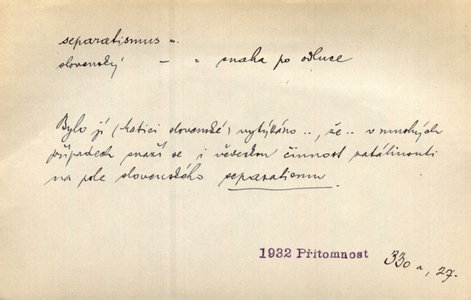 separatismus m.
slovenský – " snaha po odluce
Bylo jí (Matici slovenské) vytýkáno .., že .. v mnohých
případech snaží se i vědeckou činnost zatáhnouti
na pole slovenského separatismu.
1932 Přítomnost 330 a, 27.